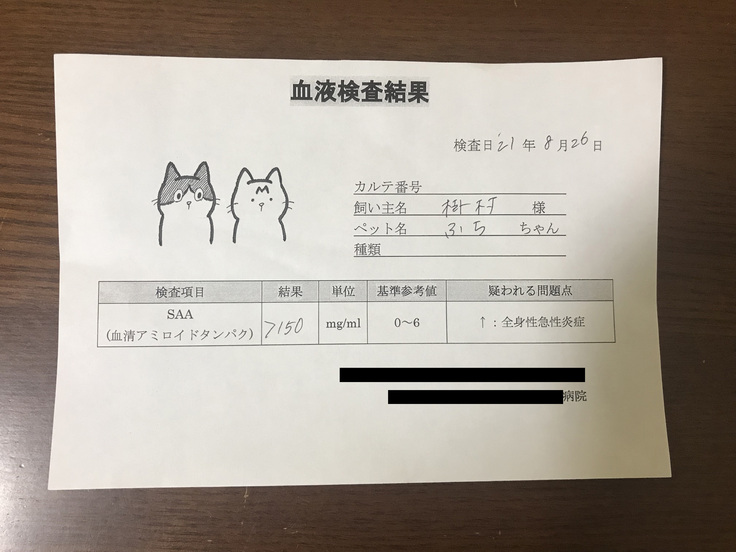 血液検査結果
検査日 '21 年 8 月 26 日
カルテ番号
飼い主名 樹村 様
ペット名 ふち ちゃん
種類
検査項目 結果 単位 基準参考値 疑われる問題点
SAA
(血清アミロイドタンパク) >150 mg/ml 0～6 ↑：全身性急性炎症
病院